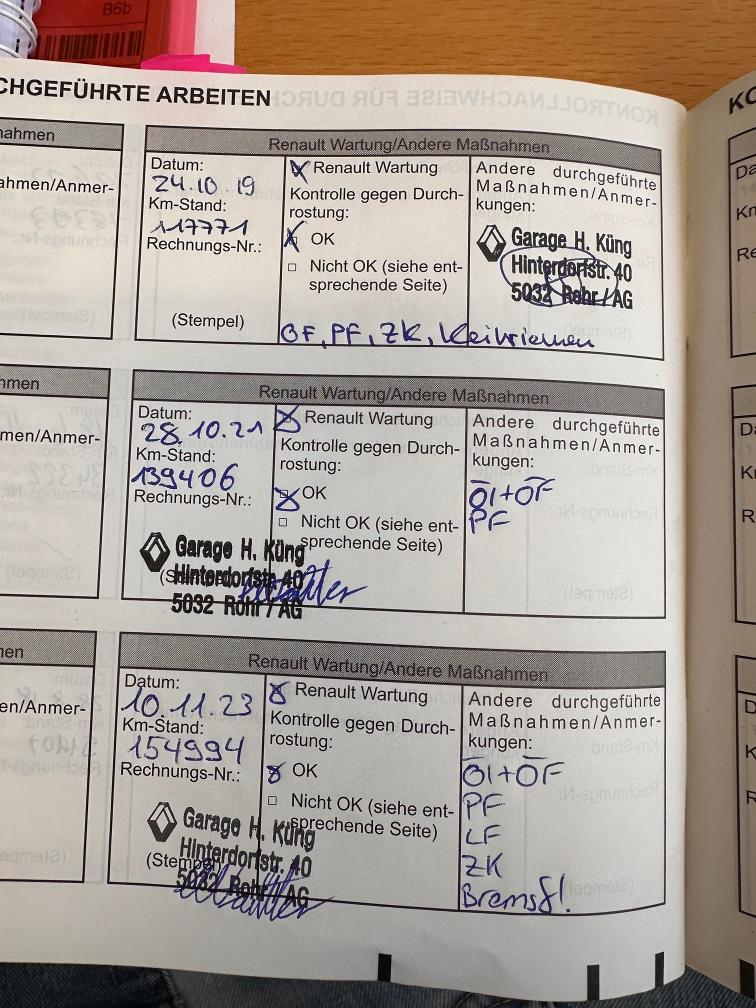 B6b
CHGEFÜHRTE ARBEITEN
nahmen
ahmen/Anmer-
Renault Wartung/Andere Maßnahmen
Datum:
24.10 19
Km-Stand:
117771
Rechnungs-Nr.:
(Stempel)
Renault Wartung
Kontrolle gegen Durch-
rostung:
OK
Nicht OK (siehe ent-
sprechende Seite)
Andere durchgeführte
Maßnahmen/Anmer-
kungen:
Garage H. Küng
Hinterdorfstr. 40
5032 Rohr/AG
ÖF, PF, ZK, Keilriemen
hmen
men/Anmer-
Renault Wartung/Andere Maßnahmen
Datum:
28.10.21
Km-Stand:
139406
Rechnungs-Nr.:
Garage H. Küng
Hinterdorfstr. 40
5032 Rohr / AG
Renault Wartung
Kontrolle gegen Durch-
rostung:
OK
Nicht OK (siehe ent-
sprechende Seite)
Andere durchgeführte
Maßnahmen/Anmer-
kungen:
Öl+ÖF
PF
en/Anmer-
Renault Wartung/Andere Maßnahmen
Datum:
10.11.23
Km-Stand:
154994
Rechnungs-Nr.:
(Stempel)
Garage H. Küng
Hinterdorfstr. 40
5032 Rohr / AG
Renault Wartung
Kontrolle gegen Durch-
rostung:
OK
Nicht OK (siehe ent-
sprechende Seite)
Andere durchgeführte
Maßnahmen/Anmer-
kungen:
Öl+ÖF
PF
LF
ZK
Bremsfl.